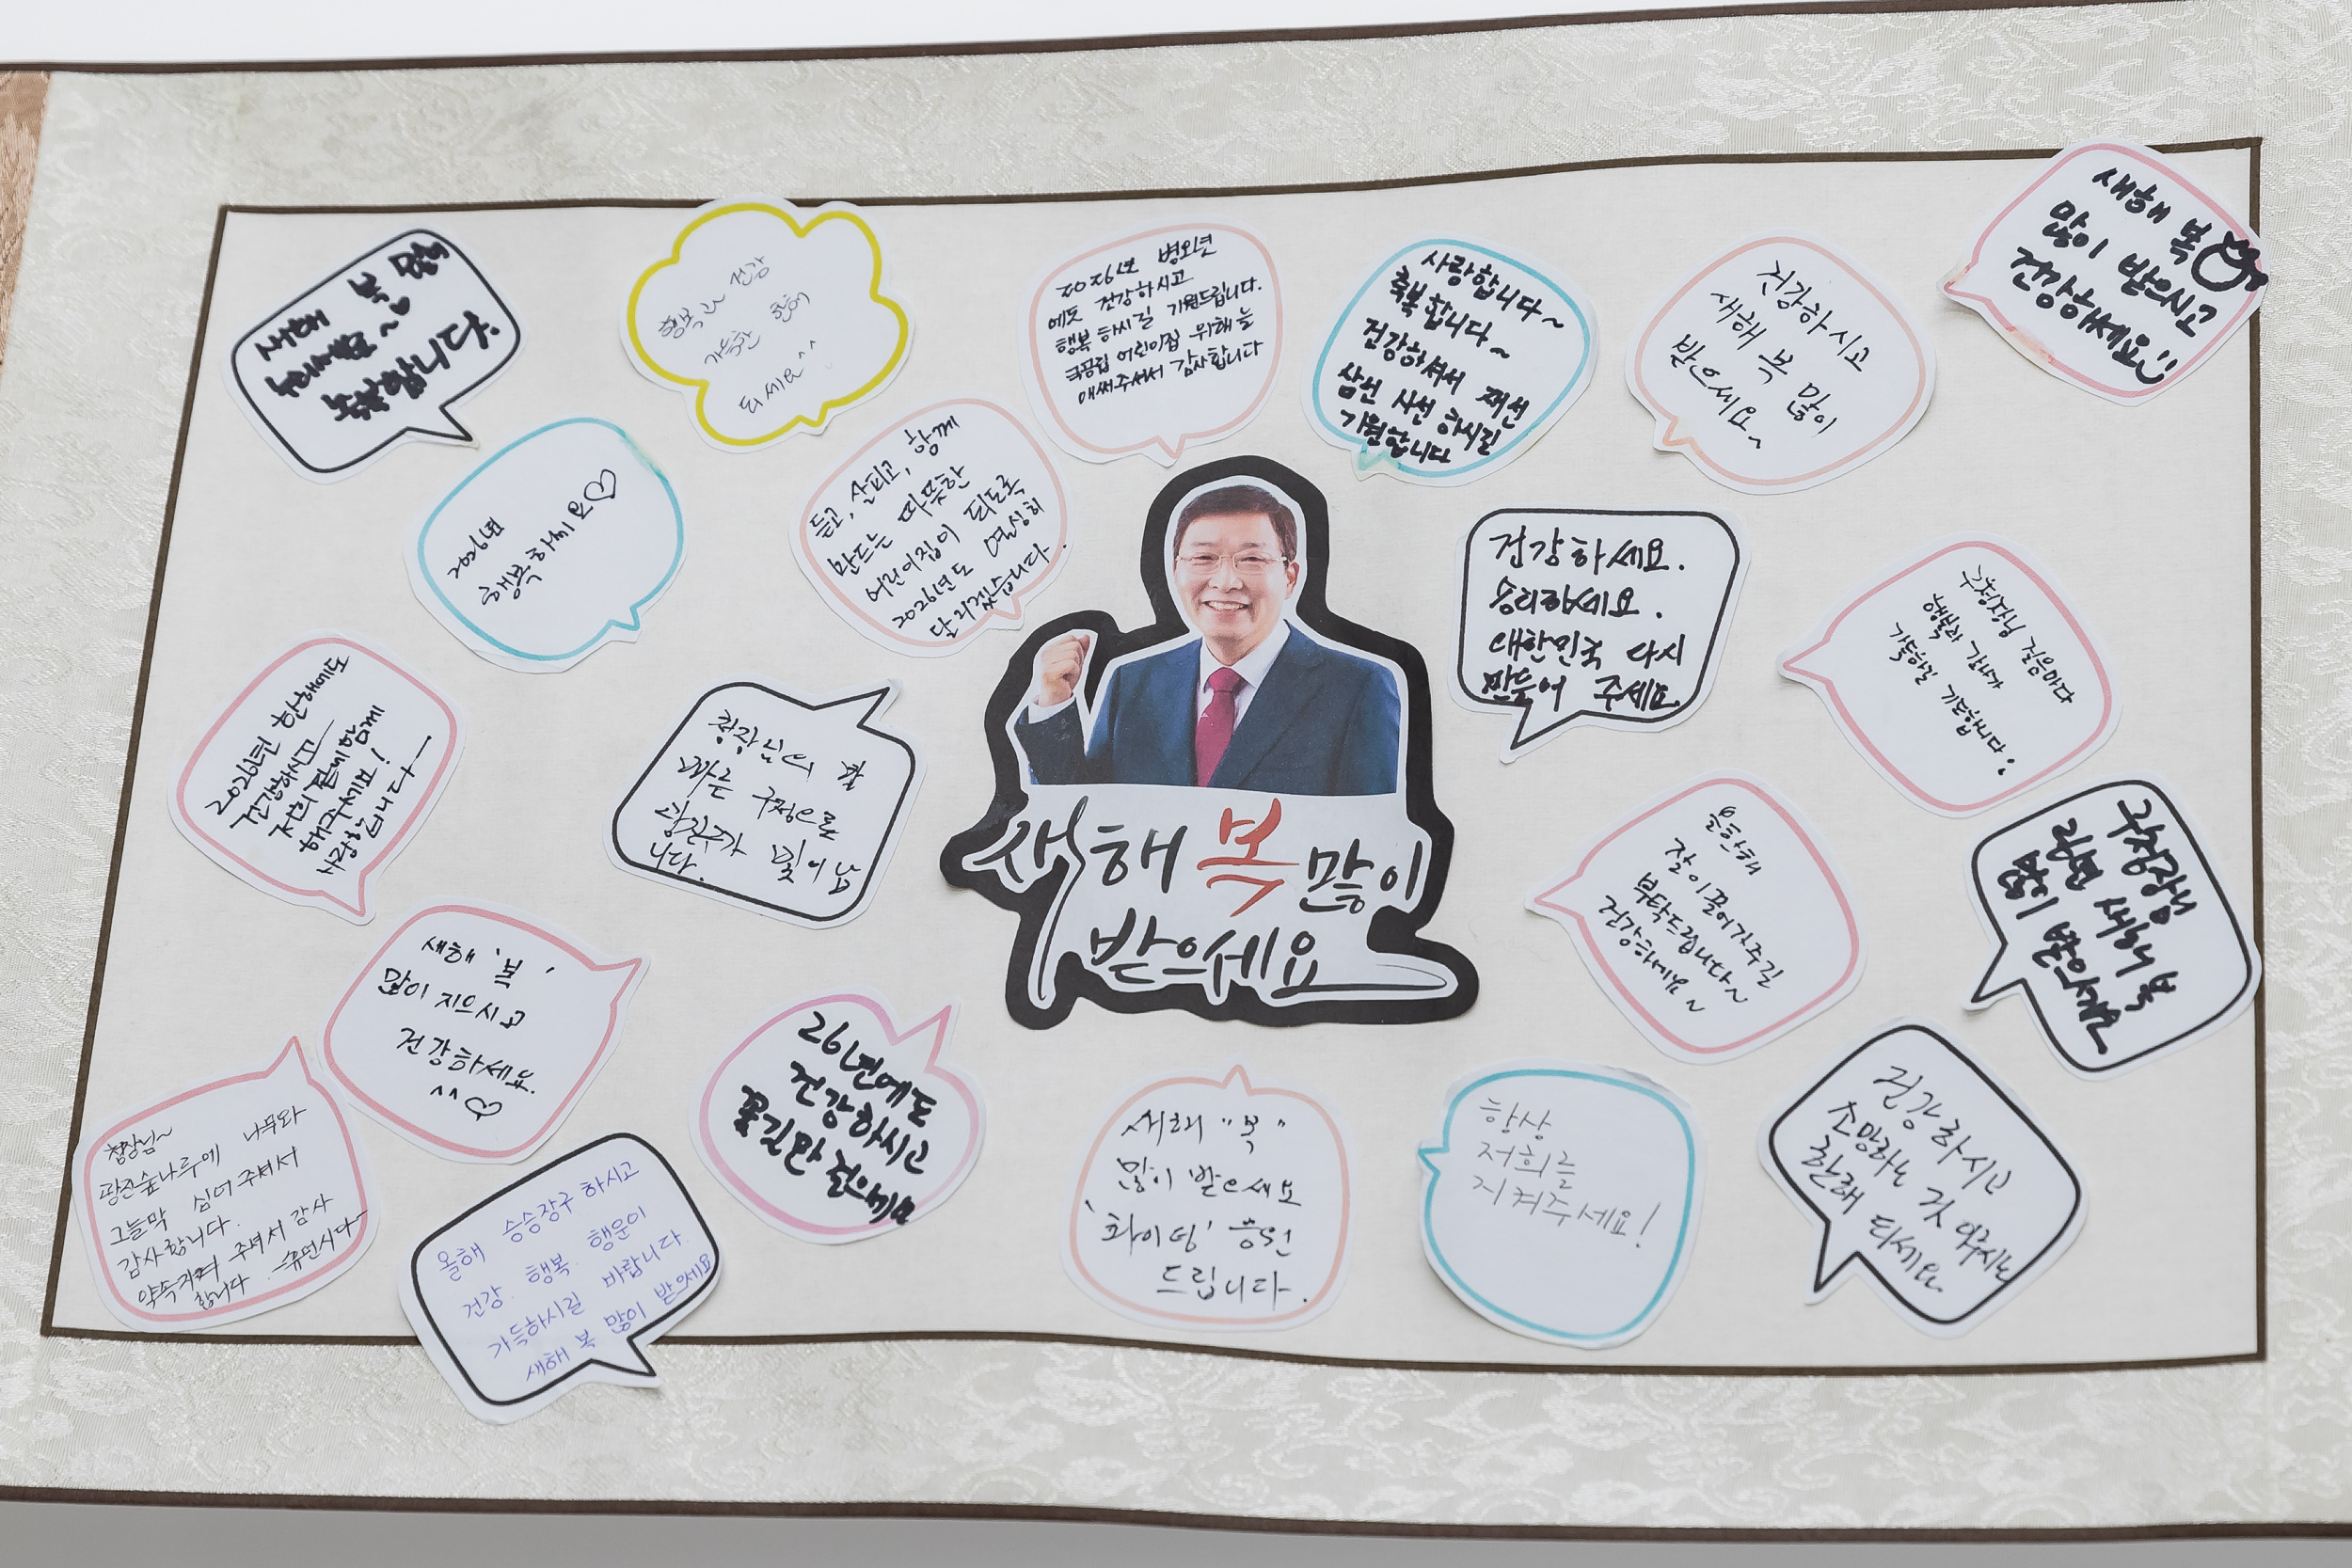 새해 복 많이
누리세요~♥
축복합니다.
행복과 건강
가득한 한해
되세요^^
2026년 병오년
에도 건강하시고
행복하시길 기원드립니다.
국공립 어린이집 위해 늘
애써주셔서 감사합니다
사랑합니다~
축복합니다~
건강하셔서 재선
삼선 사선 하시길
기원합니다
건강하시고
새해 복 많이
받으세요~
새해 복
많이 받으시고
건강하세요
2026년
행복하세요♡
듣고, 살피고, 함께
만드는 따뜻한
어린이집이 되도록
2026년도 열심히
달리겠습니다.
건강하세요.
승리하세요.
대한민국 다시
만들어 주세요.
구청장님 걸음마다
행복과 감사가
가득하길 기도합니다:
2026년 한해에도
건강하시고
저희와 함께
해주세요!
사랑합니다—
청장님의 발
빠른 구정으로
광진구가 빛이 납
니다.
새해 복 많이
받으세요
올 한해
잘 이끌어가주길
부탁드립니다~
건강하세요~
구청장님
새해 복
많이 받으세요
새해 '복'
많이 지으시고
건강하세요.
^^♡
26년에도
건강하시고
꽃길만 걸으세요
청장님~
광진숲나루에 나무와
그늘막 심어주셔서
감사합니다.
약속지켜 주셔서 감사
합니다.
올해 승승장구 하시고
건강. 행복. 행운이
가득하시길 바랍니다.
새해 복 많이 받으세요
새해 "복"
많이 받으세요
'화이팅' 응원
드립니다.
항상
저희를
지켜주세요!
건강하시고
소망하는 것 이루시는
한해 되세요